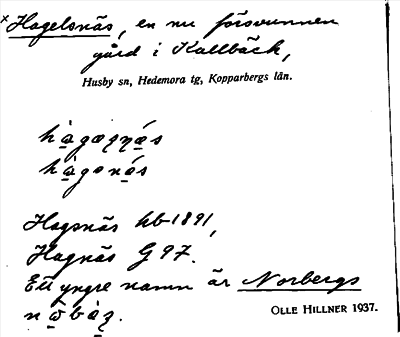 × Hagelsnäs, en nu försvunnen
gård i Kallbäck,
Husby sn, Hedemora tg, Kopparbergs län.
Hagsnäs hb 1891,
Hagnäs G 97.
Ett yngre namn är Norbergs
OLLE HILLNER 1937.